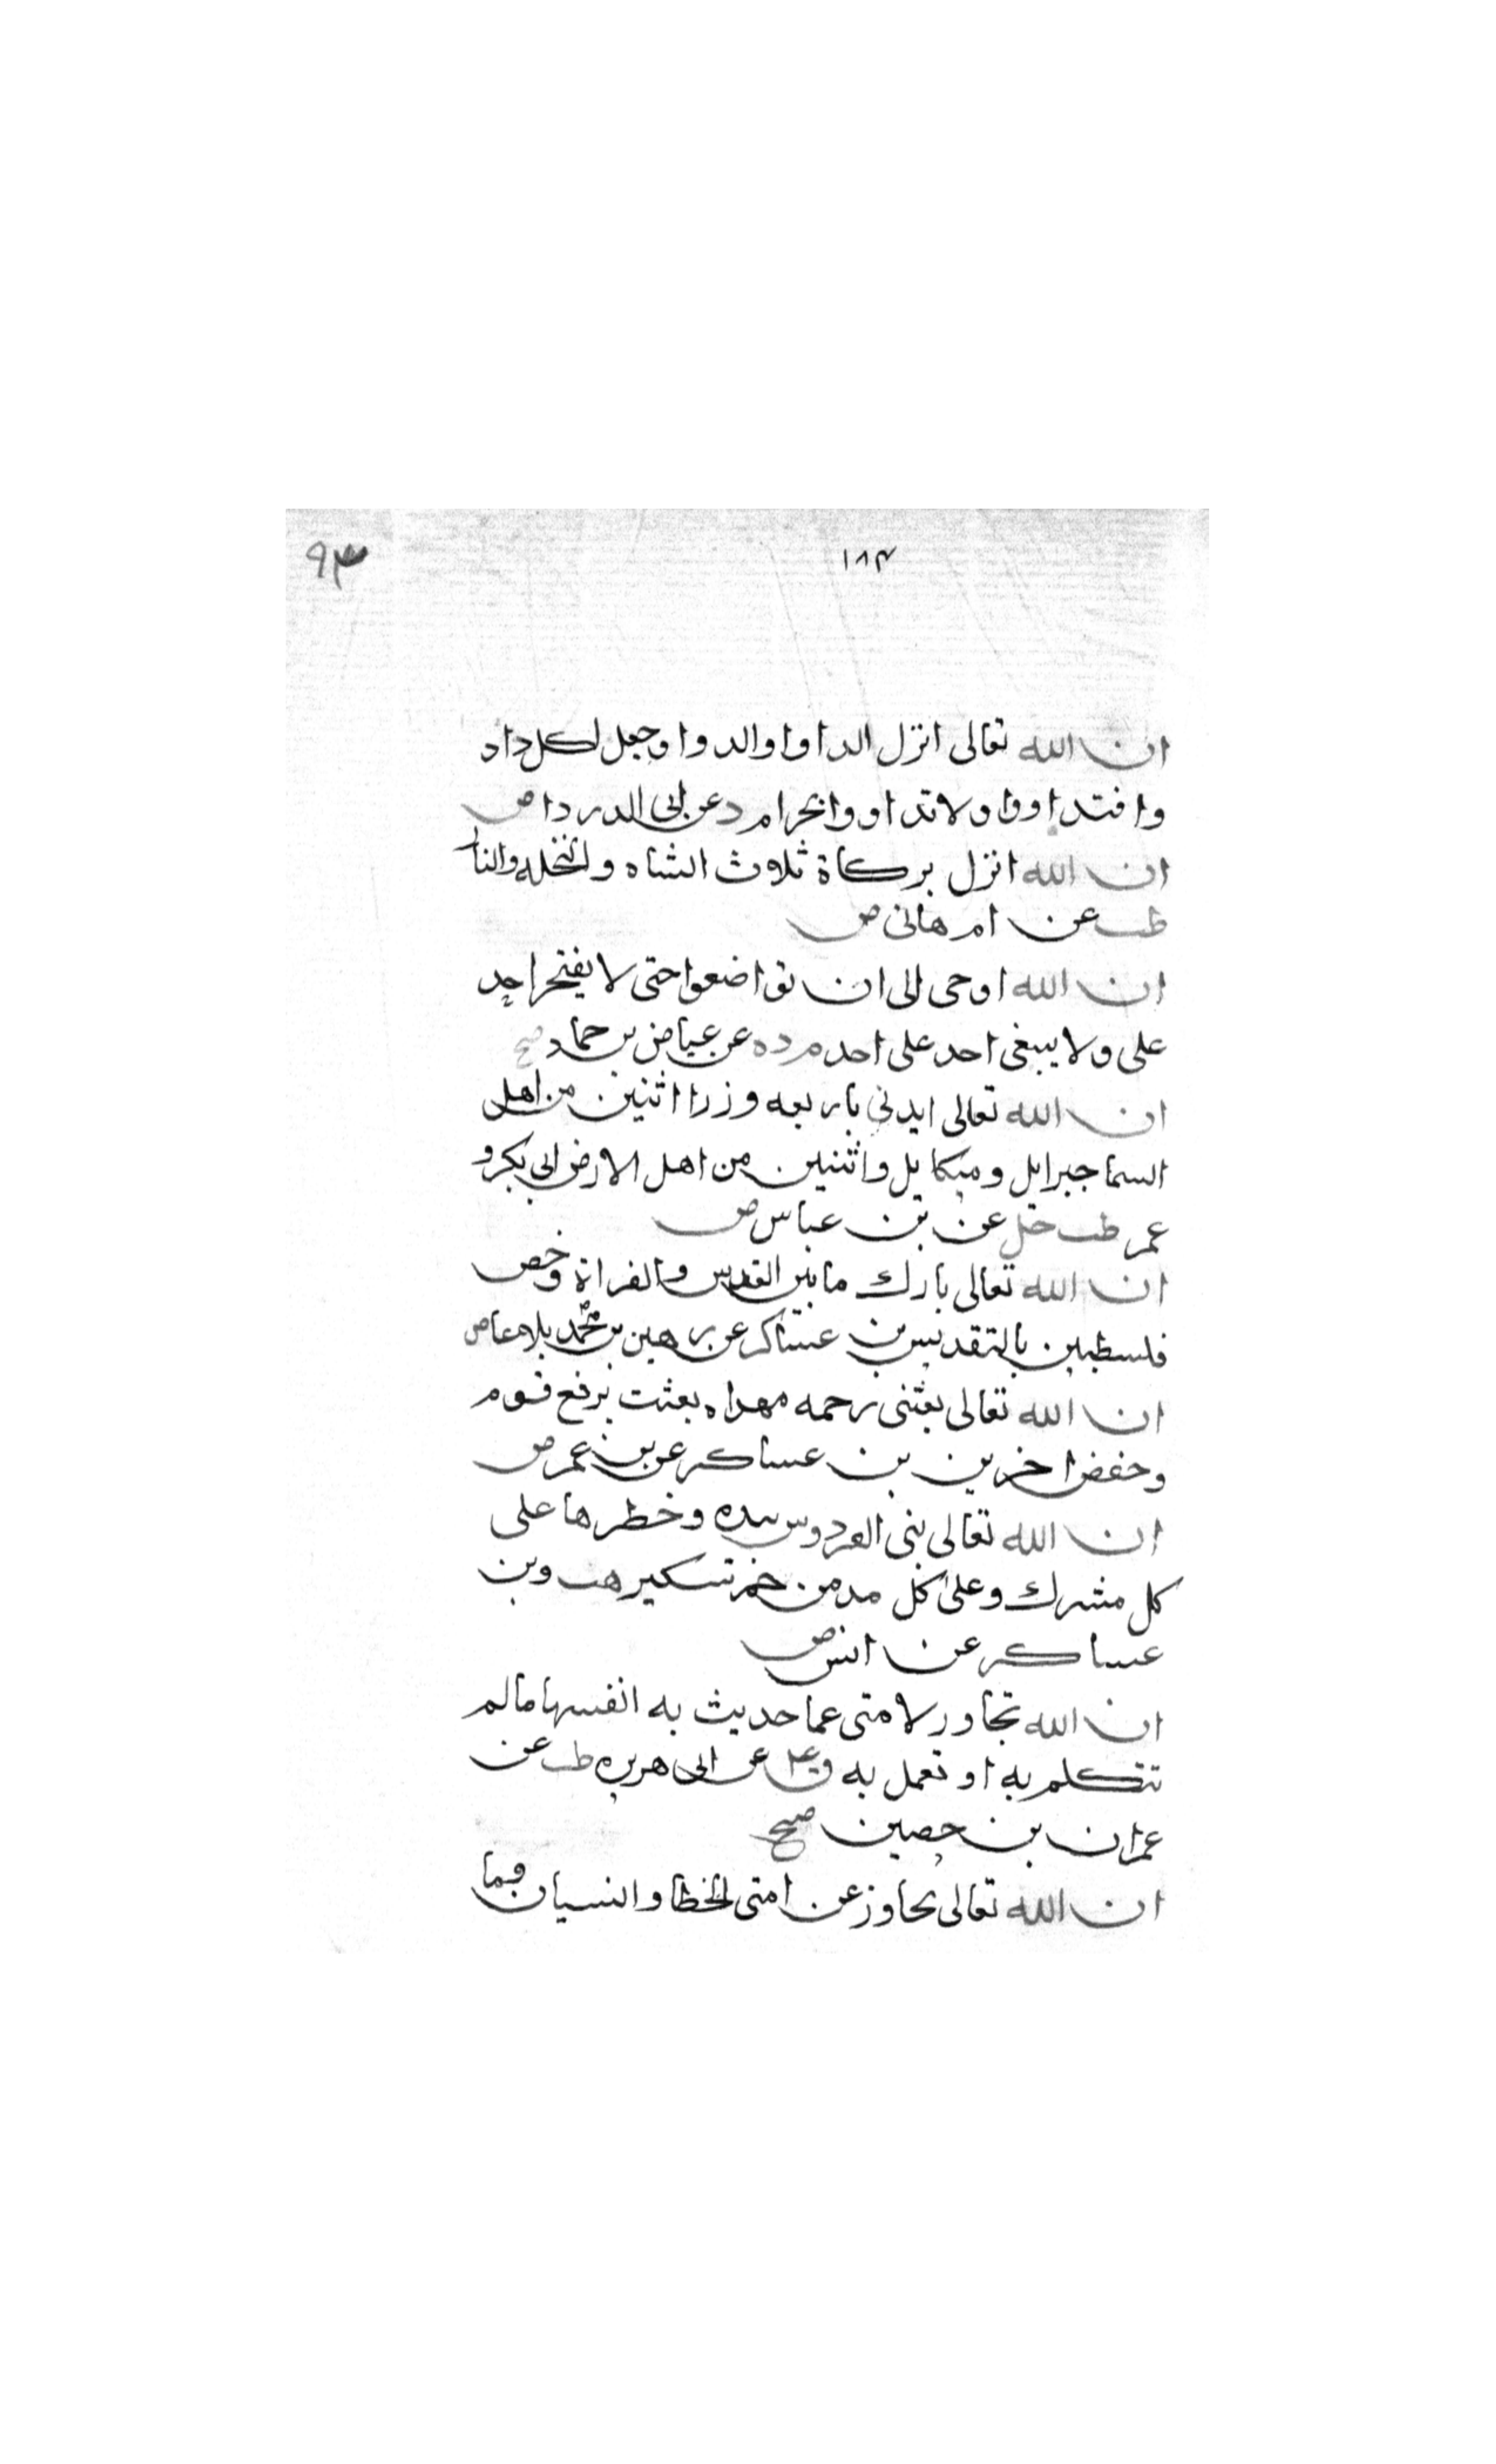 ٩٣
١٨٣
ان الله تعالى انزل الدا وا والدوا وجعل لكل دا د
وا فتداووا ولا تداووا بحرام د عن ابى الدردا ض
ان الله انزل بركاة ثلاث الشاه والنخله والنار
طب عن ام هانى ض
ان الله اوحى الى ان تواضعوا حتى لا يفتخر احد
على ولا يبغى احد على احد م د ه عن عياض بن حماد صح
ان الله تعالى ايدنى باربعه وزرا اثنين من اهل
السما جبرايل وميكايل واثنين من اهل الارض ابى بكر و
عمر طب حل عن بن عباس ض
ان الله تعالى بارك ما بين القدس والفراة وخص
فلسطين بالتقديس بن عساكر عن زهير بن محمد بلاغا ض
ان الله تعالى بعثنى رحمه مهداه بعثت برفع قوم
وخفض اخرين بن عساكر عن بن عمر ض
ان الله تعالى بنى الفردوس بيده وخطرها على
كل مشرك وعلى كل مدمن خمر سكير هب وبن
عساكر عن انس ض
ان الله تجاور لامتى عما حديث به انفسها مالم
تتكلم به او تعمل به ق ٤ عن ابى هريره طب عن
عمران بن حصين صح
ان الله تعالى تجاوز عن امتى الخطا والنسيان وما